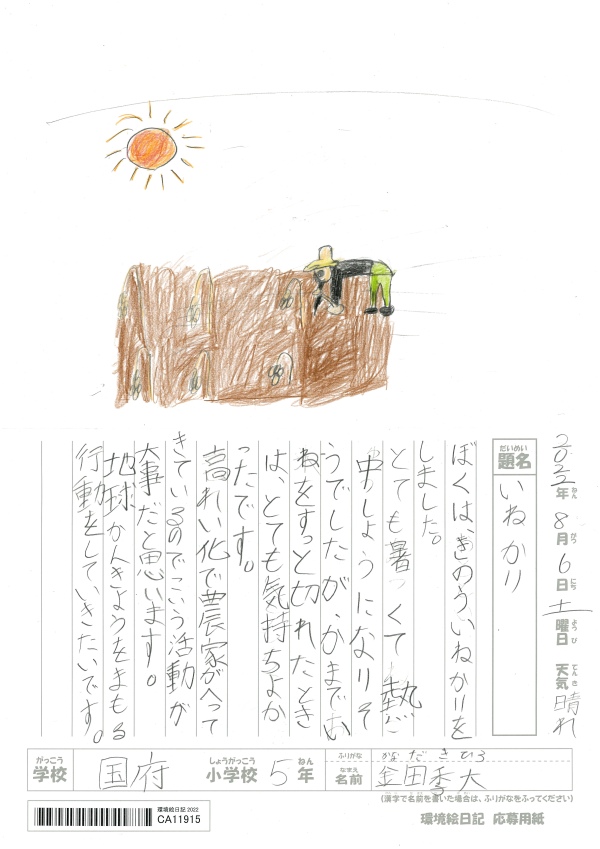 2022年8月6日土曜日 天気晴れ
だいめい
題名
いねかり
ぼくは、きのういねかりを
しました。
とても暑くて熱
中しょうになりそ
うでしたが、かまでい
ねをすっと切れたとき
は、とても気持ちよか
ったです。
高れい化で農家がへって
きているのでこいう活動が
大事だと思います。
地球かんきょうをまもる
行動をしていきたいです。
がっこう
学校
国府
しょうがっこう
小学校
5
ねん
年
ふりがな
かなだ きひろ
なまえ
名前
金田季大
(漢字で名前を書いた場合は、ふりがなをふってください)
環境絵日記 応募用紙
環境絵日記2022
CA11915